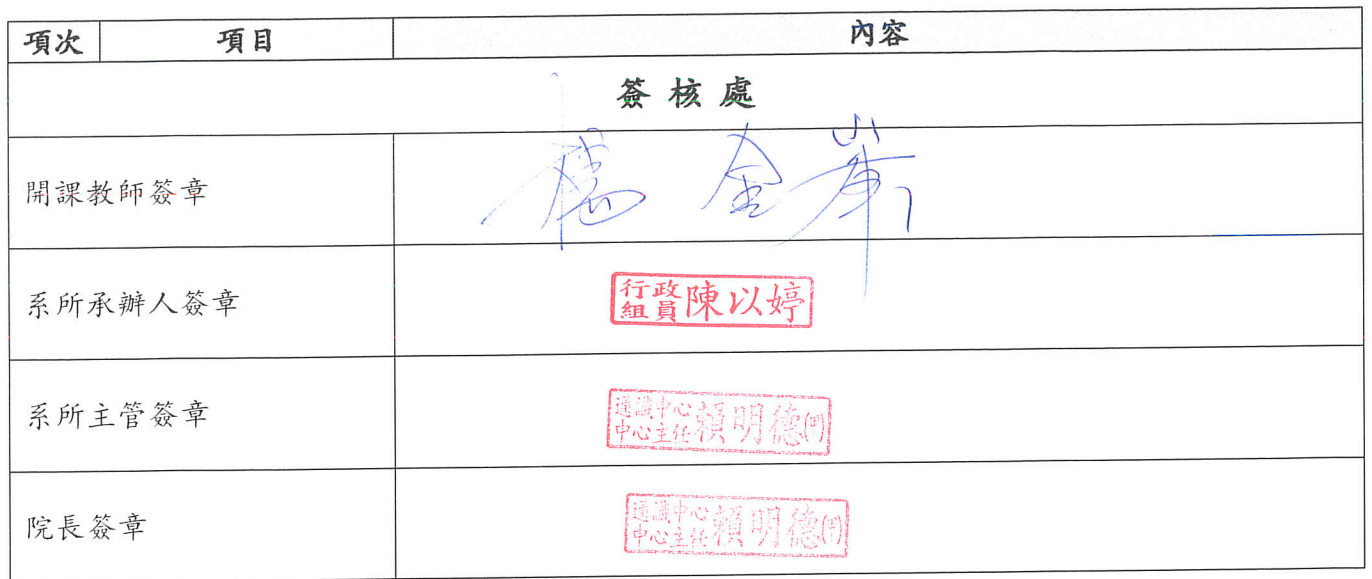 項次 項目 內容
簽核處
開課教師簽章
系所承辦人簽章 行政組員 陳以婷
系所主管簽章 通識中心中心主任 賴明德
院長簽章 通識中心中心主任 賴明德